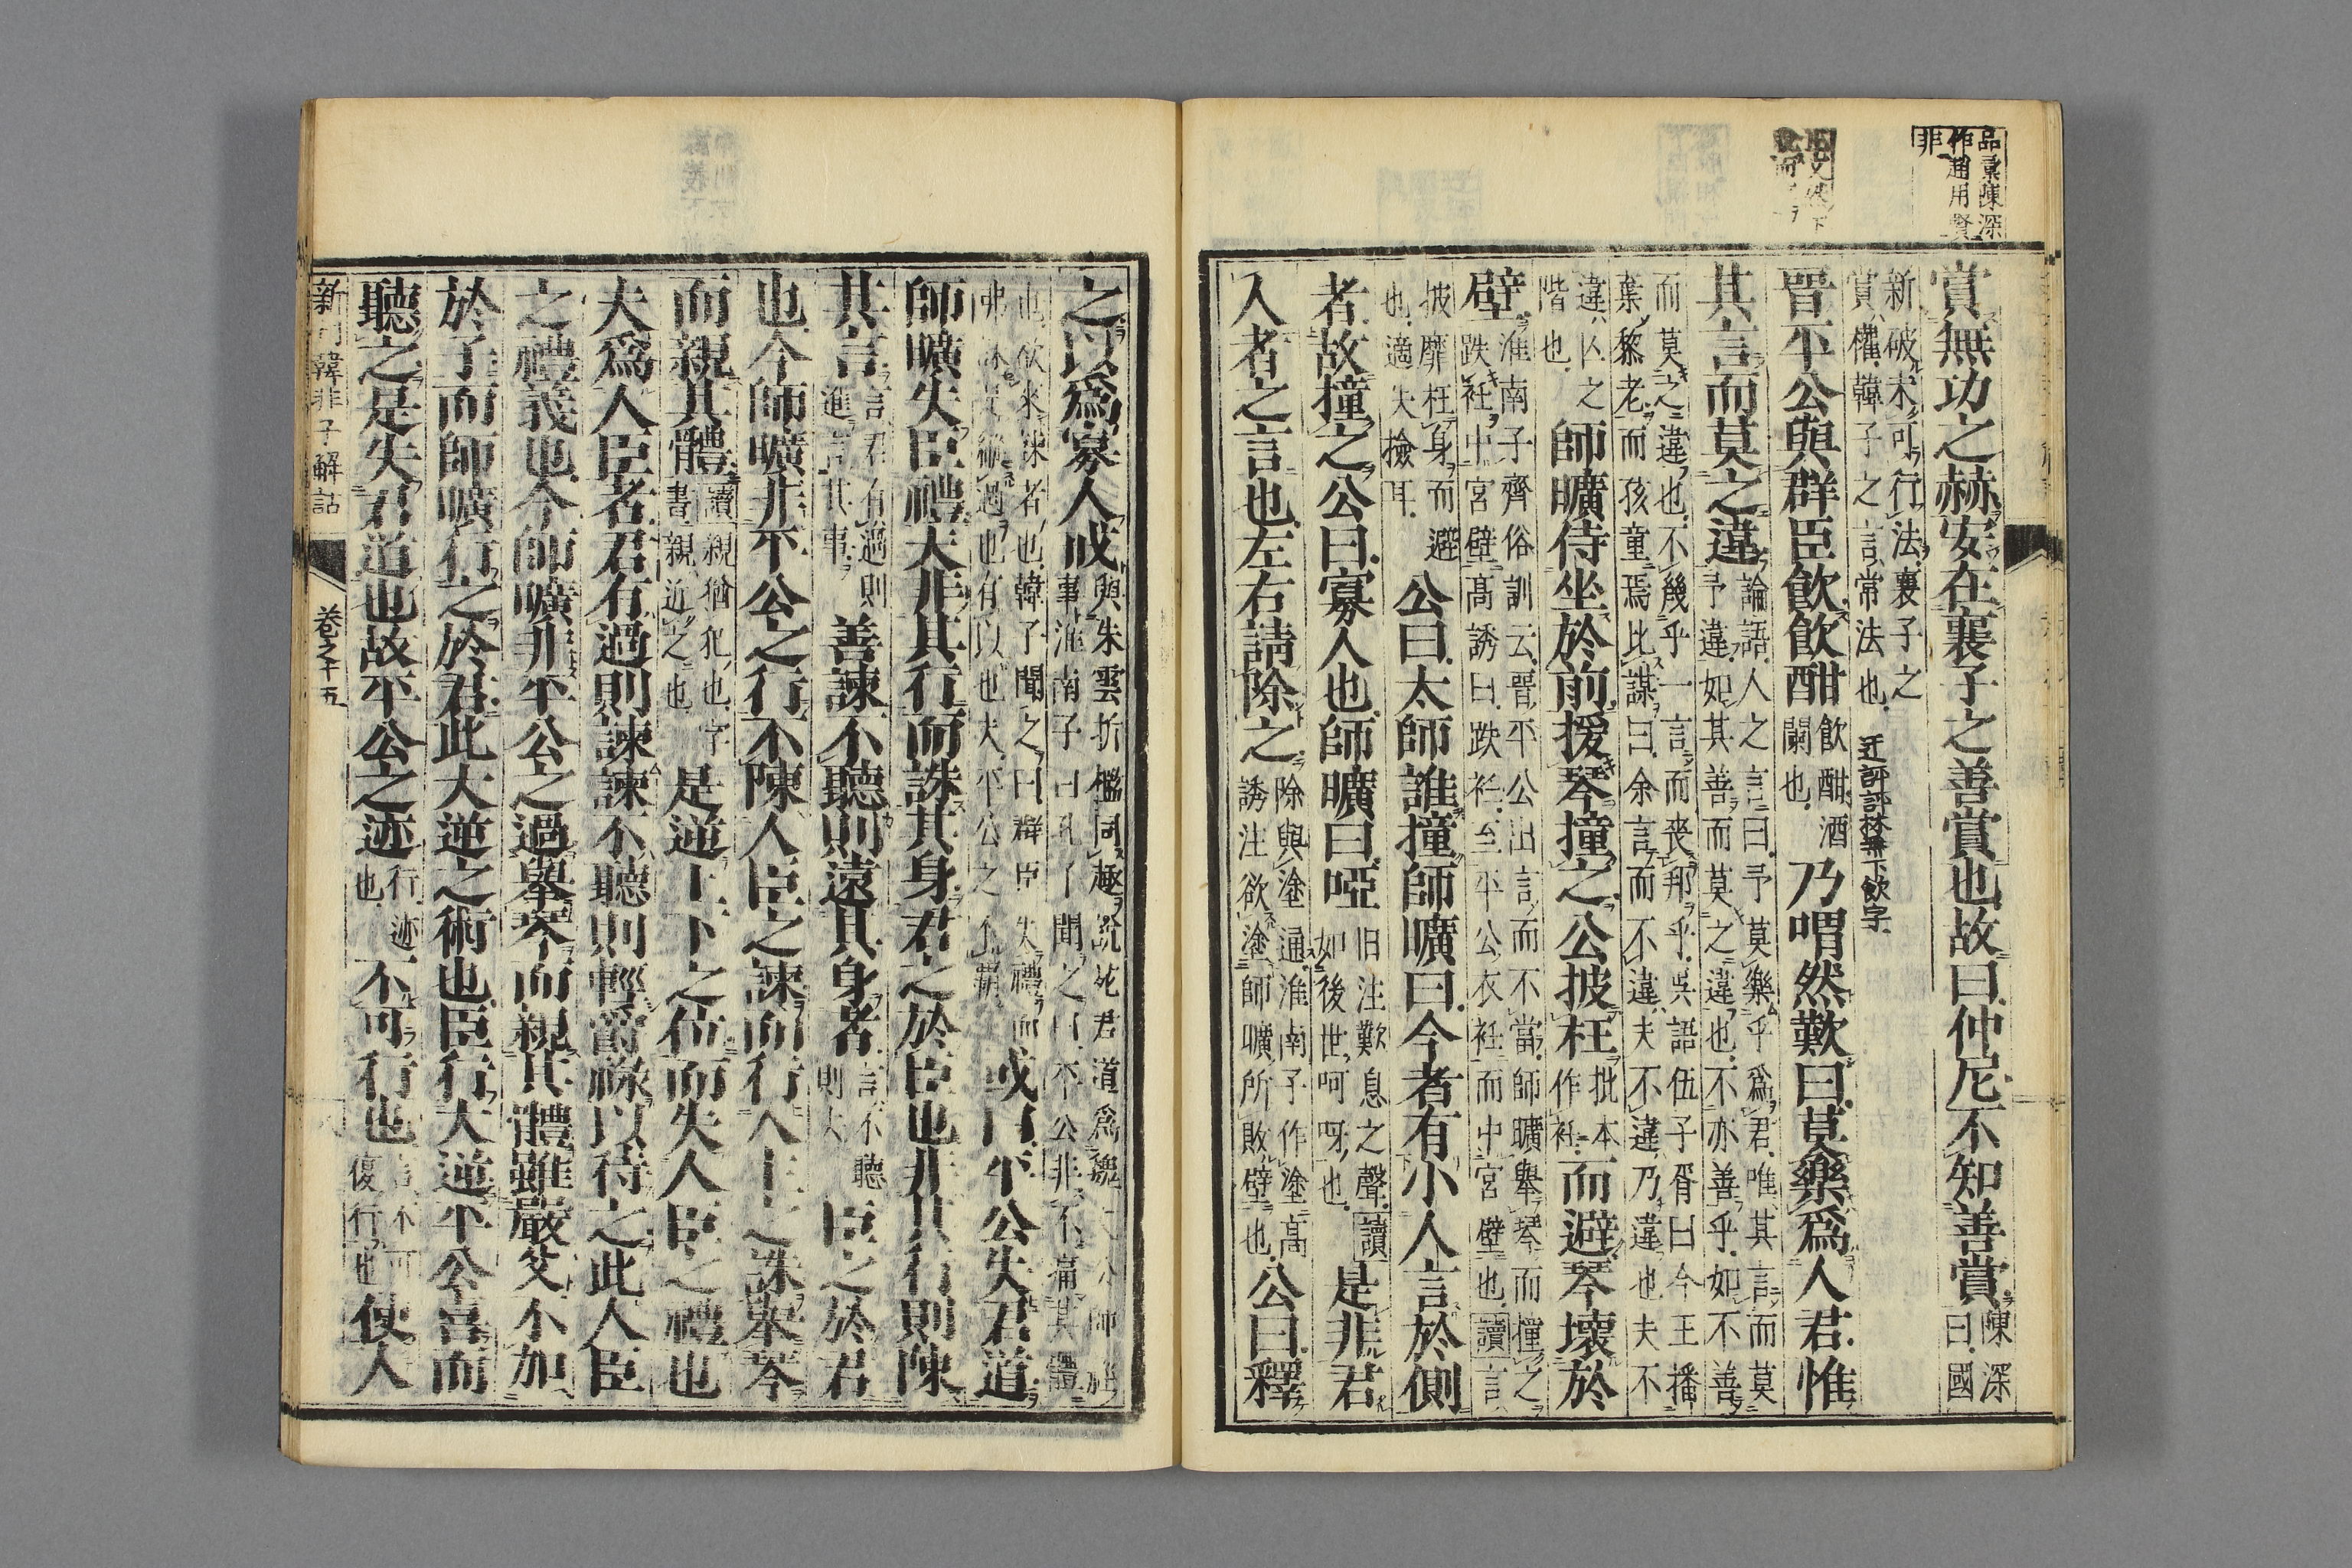 品彙陳深
作通用賢
非
賞無功之赫安在襄子之善賞也故曰仲尼不知善賞陳深曰國
新破宋可行法襄子之
賞權韓子之言常法也
迂評評林無下飮字
晋平公與群臣飮飮酣飮酣酒闌也乃喟然歎曰莫樂爲人君惟
其言而莫之違論語人之言曰予莫樂乎爲君唯其言而莫予違如其善而莫之違也不亦善乎如不善
而莫之違也不幾乎一言而喪邦乎吳語伍子胥曰今王播
棄黎老而孩童焉比謀曰余言而不違夫不違乃違也夫不
違㐫之階也師曠侍坐於前援琴撞之公披衽批本作衽而避琴壞於
壁淮南子齊俗訓云晋平公出言而不當師曠舉琴而撞之跌衽中宮壁高誘曰跌衽至平公衣衽而中宮壁也讀言
披靡枉身而避也適失撿耳公曰太師誰撞師曠曰今者有小人言於側
者故撞之公曰寡人也師曠曰啞旧注歎息之聲讀如後世呵呀也是非君
人者之言也左右請除之除與塗通淮南子作塗高誘注欲塗師曠所敗壁也公曰釋
之以爲寡人戒與朱雲折檻同極說死君道爲事淮南子曰孔子聞之曰平公非不痛其體
也欲來諫者也韓子聞之曰群臣失禮而弗誅是縱過也有以也夫平公之不霸或曰平公失君道
師曠失臣禮夫非其行而誅其身君之於臣也非其行則陳
其言言君有過則進言其事善諫不聽則遠其身者言不聽則大臣之於君
也今師曠非平公之行不陳人臣之諫而行人主之誅舉琴
而親其體讀親猶犯也字書親近之也是逆上下之位而失人臣之禮也
夫爲人臣者君有過則諫諫不聽則輕爵祿以待之此人臣
之禮義也今師曠非平公之過舉琴而親其體雖嚴父不加
於子而師曠行之於君此大逆之術也臣行大逆平公喜而
聽之是失君道也故平公之迹行迹也不可明也言不可復行也使人
新刊韓非子解詁
卷之十五